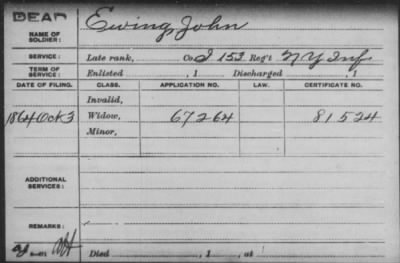 DEAD
NAME OF SOLDIER: Ewing, John
SERVICE: Late rank, Co. I 153 Reg't N Y Inf
TERM OF SERVICE: Enlisted , 1 Discharged , 1
DATE OF FILING. CLASS. APPLICATION NO. LAW. CERTIFICATE NO.
Invalid,
1864 Oct 3 Widow, 67264 81524
Minor,
ADDITIONAL SERVICES:
REMARKS:
Died , 1 , at